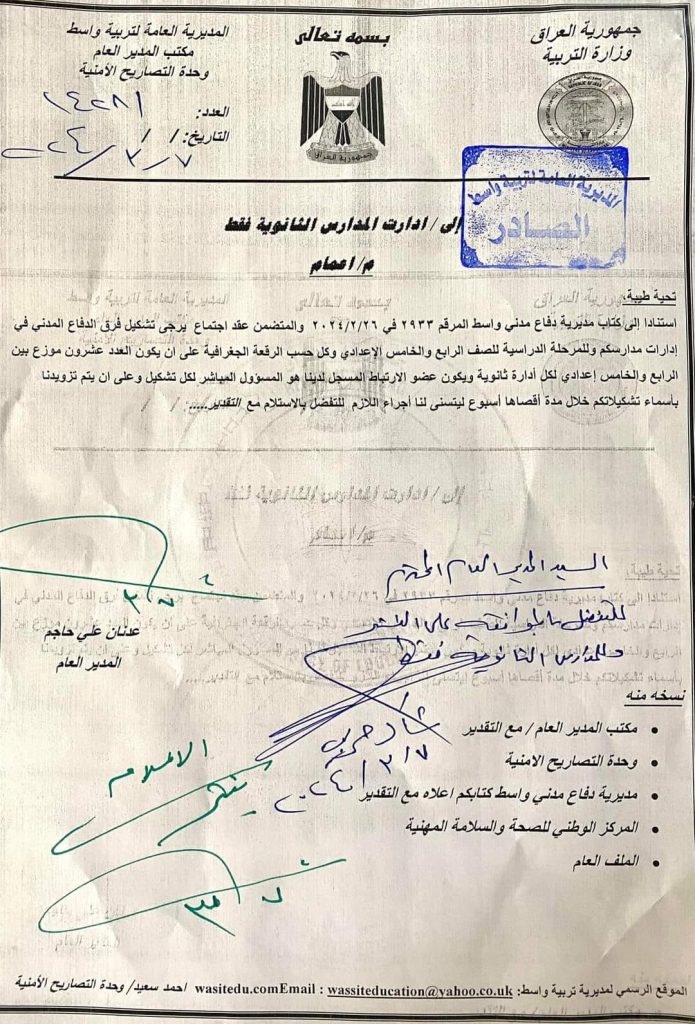 جمهورية العراق
وزارة التربية
بسمه تعالى
المديرية العامة لتربية واسط
مكتب المدير العام
وحدة التصاريح الأمنية
العدد: ١٤٢٨١
التاريخ: ٧ / ٣ / ٢٠٢٤
جمهورية العراق
المديرية العامة لتربية واسط
الصادر
إلى / ادارت المدارس الثانوية فقط
م/ اعمام
تحية طيبة:
استنادا إلى كتاب مديرية دفاع مدني واسط المرقم ٢٩٣٣ في ٢٠٢٤/٢/٢٦ والمتضمن عقد اجتماع يرجى تشكيل فرق الدفاع المدني في
إدارات مدارسكم وللمرحلة الدراسية للصف الرابع والخامس الإعدادي وكل حسب الرقعة الجغرافية على ان يكون العدد عشرون موزع بين
الرابع والخامس إعدادي لكل أدارة ثانوية ويكون عضو الارتباط المسجل لدينا هو المسؤول المباشر لكل تشكيل وعلى ان يتم تزويدنا
بأسماء تشكيلاتكم خلال مدة أقصاها أسبوع ليتسنى لنا أجراء اللازم للتفضل بالاستلام مع التقدير.....
السيد المدير العام المحترم
للتفضل بالموافقة على النشر
وللمدارس الثانوية فقط
٢٠٢٤/٣/٧
٣/٧
عدنان علي حاجم
المدير العام
نسخه منه
• مكتب المدير العام / مع التقدير
• وحدة التصاريح الامنية
• مديرية دفاع مدني واسط كتابكم اعلاه مع التقدير
• المركز الوطني للصحة والسلامة المهنية
• الملف العام
الاعلام
ينشر
٣/٧
الموقع الرسمي لمديرية تربية واسط: wasitedu.comEmail : wassiteducation@yahoo.co.uk احمد سعيد/ وحدة التصاريح الأمنية